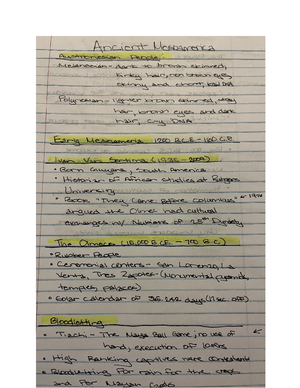 Ancient Mesoamerica
Austronesian People:
Melanesian - dark to brown skinned,
kinky hair, brown eyes,
skinny and short,
Polynesian - lighter brown skinned, wavy
hair, brown eyes and dark
hair, DNA
Early Mesoamerica 1200 B.C.E - 180 C.E
Ivan Van Sertima (1935 - 2009)
• Born Guyana, South America
• Historian of African Studies at Rutgers
University
• Book "They Came Before Columbus" ← 1976
argued the Olmec had cultural
exchanges w/ Nubians of 25th Dynasty
The Olmecs (B.C.E - 700 B.C)
• Rubber People
• Ceremonial centers - San Lorenzo, La
Venta, Tres Zapotes - (Monumental pyramids,
temples, palaces)
• Solar Calendar of 365.242 days (17 sec off)
Bloodletting
• Tlachi - The Maya Ball Game, no use of
hand, execution of losers
• High Ranking captives were
• Bloodletting for rain for the crops
and for Mayan Gods